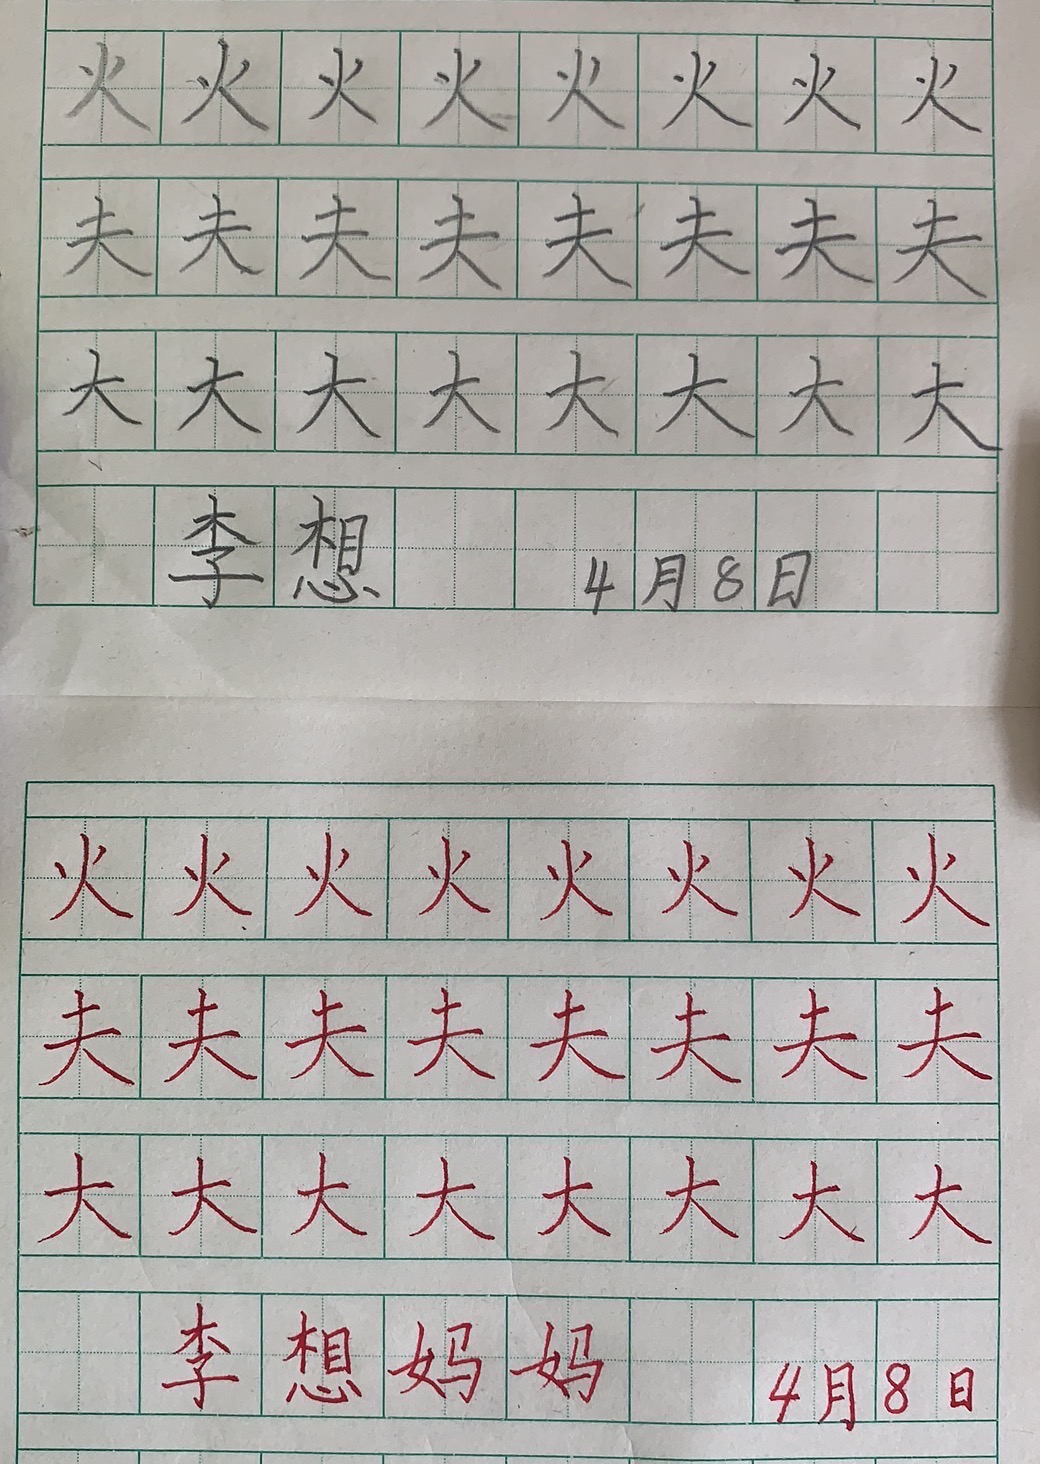 火火火火火火火火
夫夫夫夫夫夫夫夫
大大大大大大大大
李想 4月8日
火火火火火火火火
夫夫夫夫夫夫夫夫
大大大大大大大大
李想妈妈 4月8日